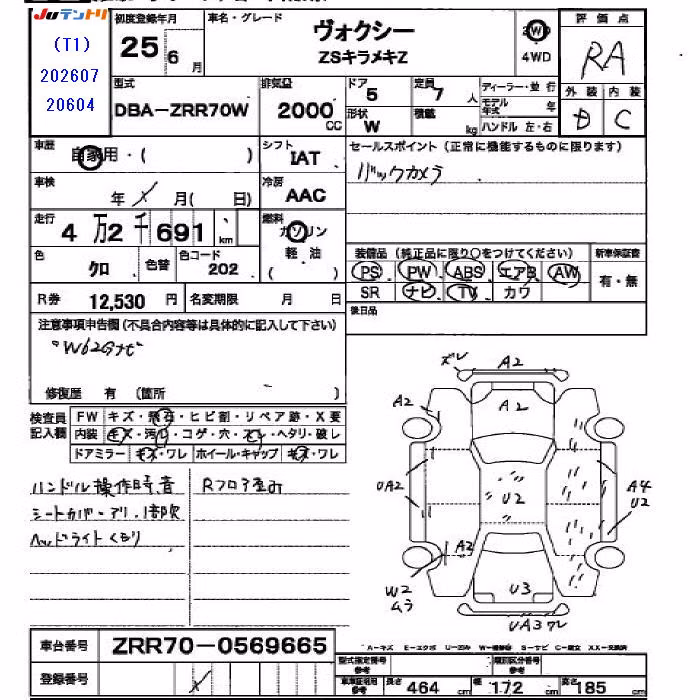 Juテントリ
(T1)
202607
20604
初度登録年月
25 6 月
車名・グレード
ヴォクシー
ZSキラメキZ
2WD
4WD
評価点
RA
型式
DBA-ZRR70W
排気量
2000 CC
ドア
5
形状
W
定員
7 人
積載
kg
ディーラー・並行
モデル年式 年
ハンドル 左・右
外装 内装
D C
車歴
自家用・( )
シフト
IAT
車検
年 月( 日)
冷房
AAC
走行
4万2千691 km
燃料
ガソリン
軽・油
( )
色
クロ
色替
色コード
202
R券 12,530 円
名変期限 月 日
セールスポイント(正常に機能するものに限ります)
バックカメラ
装備品(純正品に限り○をつけてください)
新車保証書
PS PW ABS エアB AW
SR ナビ TV カワ
有・無
後日品
注意事項申告欄(不具合内容等は具体的に記入して下さい)
"W62Gナビ"
修復歴 有 (箇所 )
検査員記入欄
FW キズ・飛石・ヒビ割・リペア跡・X要
内装 キズ・汚レ・コゲ・穴・スレ・ヘタリ・破レ
ドアミラー キズ・ワレ ホイール・キャップ キズ・ワレ
ハンドル操作時音
Rフロア歪み
シートカバーアリ.1部欠
ヘッドライトくもり
ズレ
A2
A2
A2
UA2
U2
A4
U2
A2
W2
ムラ
U3
UA3ワレ
車台番号 ZRR70-0569665
登録番号
A-キズ E-エクボ U-凹み W-補修跡 S-サビ C-腐食 XX-交換済
型式指定番号 参考
類別区分番号 参考
車車証明用 参考
長さ 464 cm 幅 172 cm 高さ 185 cm